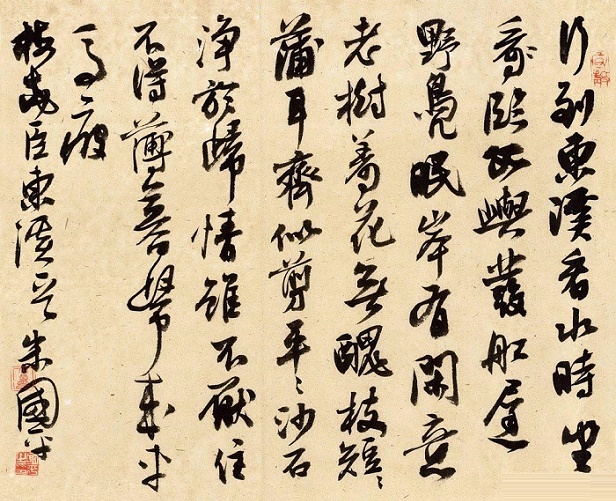 行到東溪看水時坐
臨孤嶼發舡遲
野鳧眠岸有閑意
老樹着花無醜枝短〻
蒲耳齊似剪平〻沙石
淨於篩情雖不厭住
不得薄暮歸來車
馬疲
梅堯臣東溪 朱國平